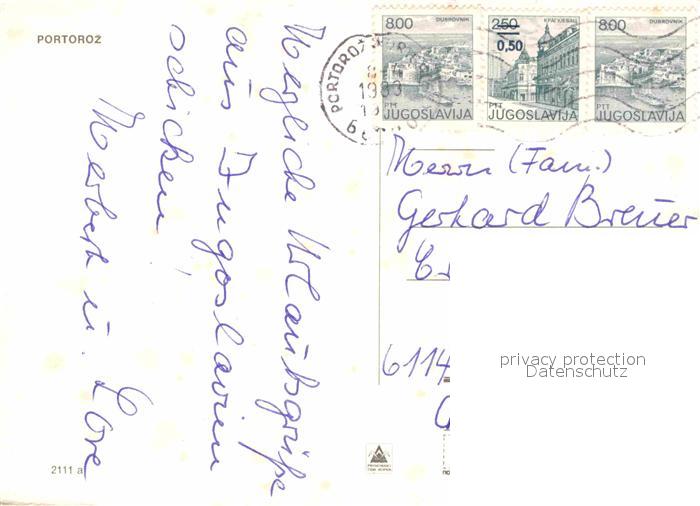 PORTOROŽ
Herzliche Urlaubsgrüße
aus Jugoslawien
schicken
Herbert u. Lore
2111 a
PORTOROŽ
1983
6
8.00
DUBROVNIK
PTT
JUGOSLAVIJA
2.50
0,50
KRAGUJEVAC
PTT
JUGOSLAVIJA
8.00
DUBROVNIK
PTT
JUGOSLAVIJA
Herrn (Fam.)
Gerhard Breuer
6114
privacy protection
Datenschutz